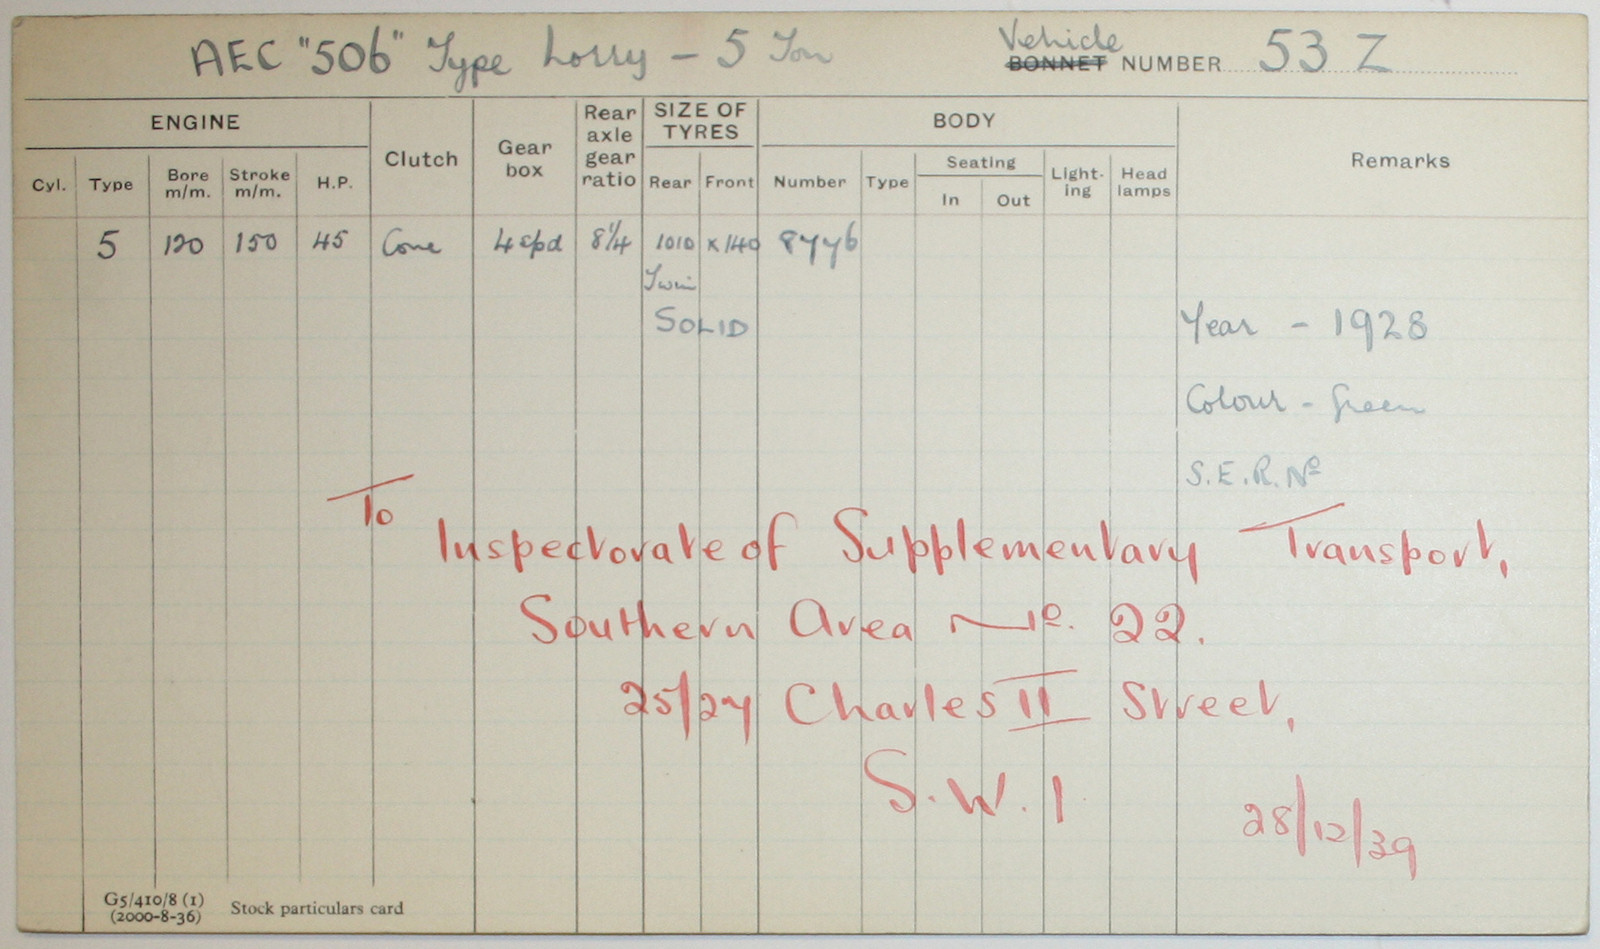 AEC "506" Type Lorry - 5 Ton
Vehicle
BONNET NUMBER 53 Z
ENGINE
Clutch
Gear box
Rear axle gear ratio
SIZE OF TYRES
BODY
Remarks
Cyl.
Type
Bore m/m.
Stroke m/m.
H.P.
Rear
Front
Number
Type
Seating
In
Out
Light-ing
Head lamps
5 120 150 45 Cone 4 spd 8¼ 1010 x 140 8776
Twin
SOLID
Year - 1928
Colour - Green
S.E.R. Nº
To
Inspectorate of Supplementary Transport,
Southern Area Nº. 22.
25/27 Charles II Street,
S.W.1
28/12/39
G5/410/8 (1)
(2000-8-36)
Stock particulars card